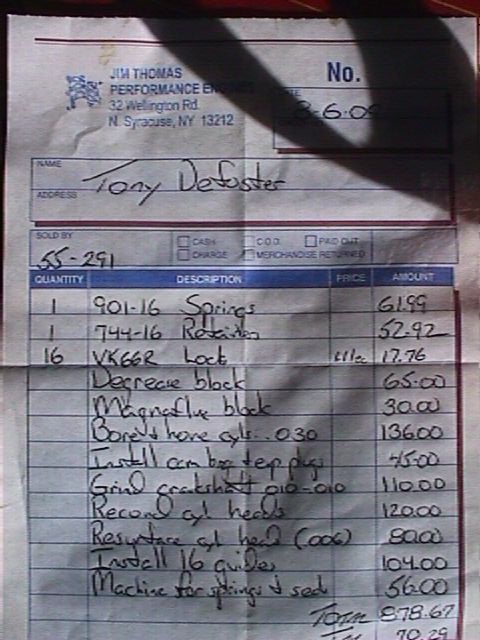 JIM THOMAS
PERFORMANCE ENGINES
32 Wellington Rd.
N. Syracuse, NY 13212
No.
DATE
8-6-09
NAME
Tony Defoster
ADDRESS
SOLD BY
CASH
C.O.D.
PAID OUT
CHARGE
MERCHANDISE RETURNED
55-291
QUANTITY DESCRIPTION PRICE AMOUNT
1 901-16 Springs 61.99
1 744-16 Retainers 52.92
16 VK66R Lock 1.11ea 17.76
Degrease block 65.00
Magnaflux block 30.00
Bore & hone cyls. .030 136.00
Install cam brg & exp plugs 45.00
Grind crankshaft 010-010 110.00
Recond cyl heads 120.00
Resurface cyl head (.006) 80.00
Install 16 guides 104.00
Machine for springs & seal 56.00
878.67
70.29